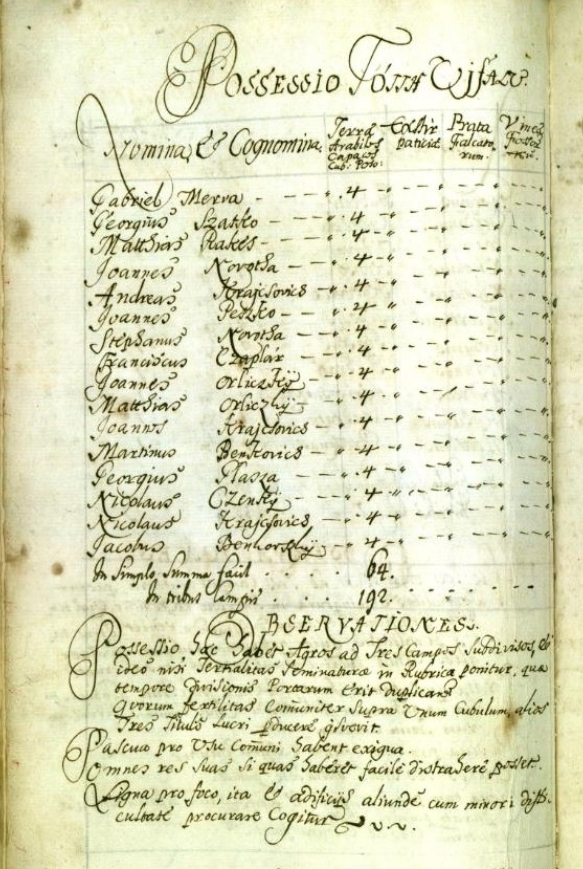 Possessio Tótth Ujfalu.
Nomina & Cognomina Terræ Arabiles Capaces Cub: Poso: Exstirpatitiæ Prata Falcatorum. Vineæ
Gabriel Merva - " 4 " - " - " - "
Georgius Szatko - " 4 " - " - " - "
Matthias Rakes - " 4 " - " - " - "
Joannes Novotha - " 4 " - " - " - "
Andreas Krajcsovics - " 4 " - " - " - "
Joannes Peszko - " 4 " - " - " - "
Stephanus Novotha - " 4 " - " - " - "
Franciscus Czaplár - " 4 " - " - " - "
Joannes Orliczkij - " 4 " - " - " - "
Matthias Orliczkij - " 4 " - " - " - "
Joannes Krajcsovics - " 4 " - " - " - "
Martinus Benkovics - " 4 " - " - " - "
Georgius Plasza - " 4 " - " - " - "
Nicolaus Czenkij - " 4 " - " - " - "
Nicolaus Krajcsovics - " 4 " - " - " - "
Jacobus - " 4 " - " - " - "
In Simplo Summa facit . . . 64.
In tribus Campis . . . 192.
OBSERVATIONES.
Possessio hæc habet Agros ad Tres Campos Subdivisos, &
ideo nisi Tertialitas Seminaturæ in Rubrica ponitur, quæ
tempore Divisionis Portarum Erit Duplicans
Quorum fertilitas Comuniter Supra Unum Cubulum, alios
Tres Titulo Lucri pducere
Pascua pro Usu Comuni habent exigua.
Omnes res Suas Si quas haberet facile distrahere posset.
Ligna pro foco, ita & ædificijs aliunde cum minori diffi-
cultate procurare Cogitur